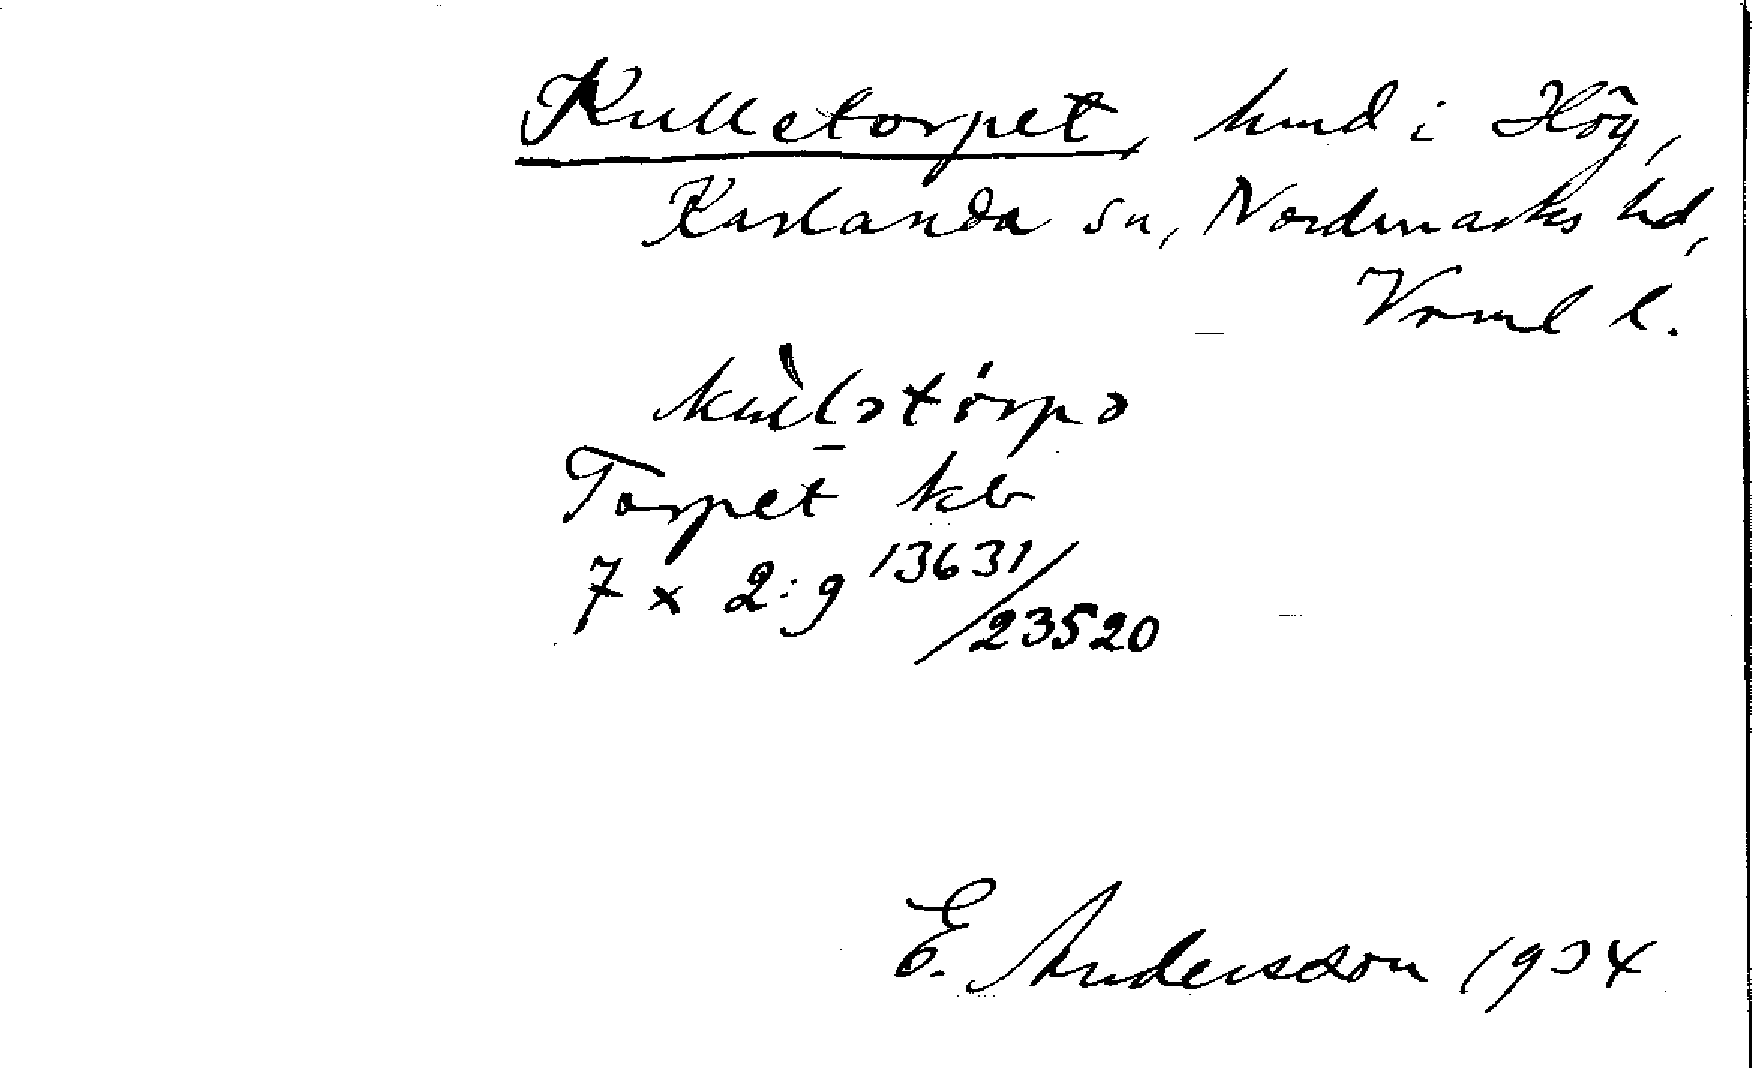 Kulletorpet, hmd i Hög,
Karlanda sn, Nordmarks hd,
Vrml l.
kùlətórpə
Torpet kb
7 x 2:9 13631/23520
E. Andersson 1934